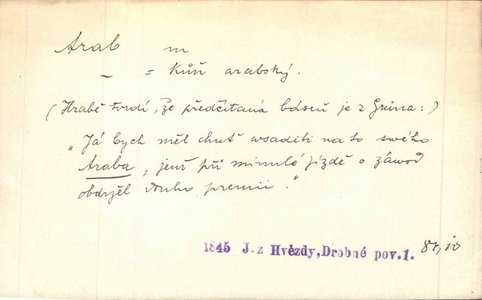 Arab m
~ = kůň arabský.
(Hrabě tvrdí, že předčítaná báseň je z Grüna:)
"Já bych měl chuť vsaditi na to svého
Araba, jenž při minulé jízdě o závod
obdržel druhou premii."
1845 J. z Hvězdy, Drobné pov. 1. 87,10